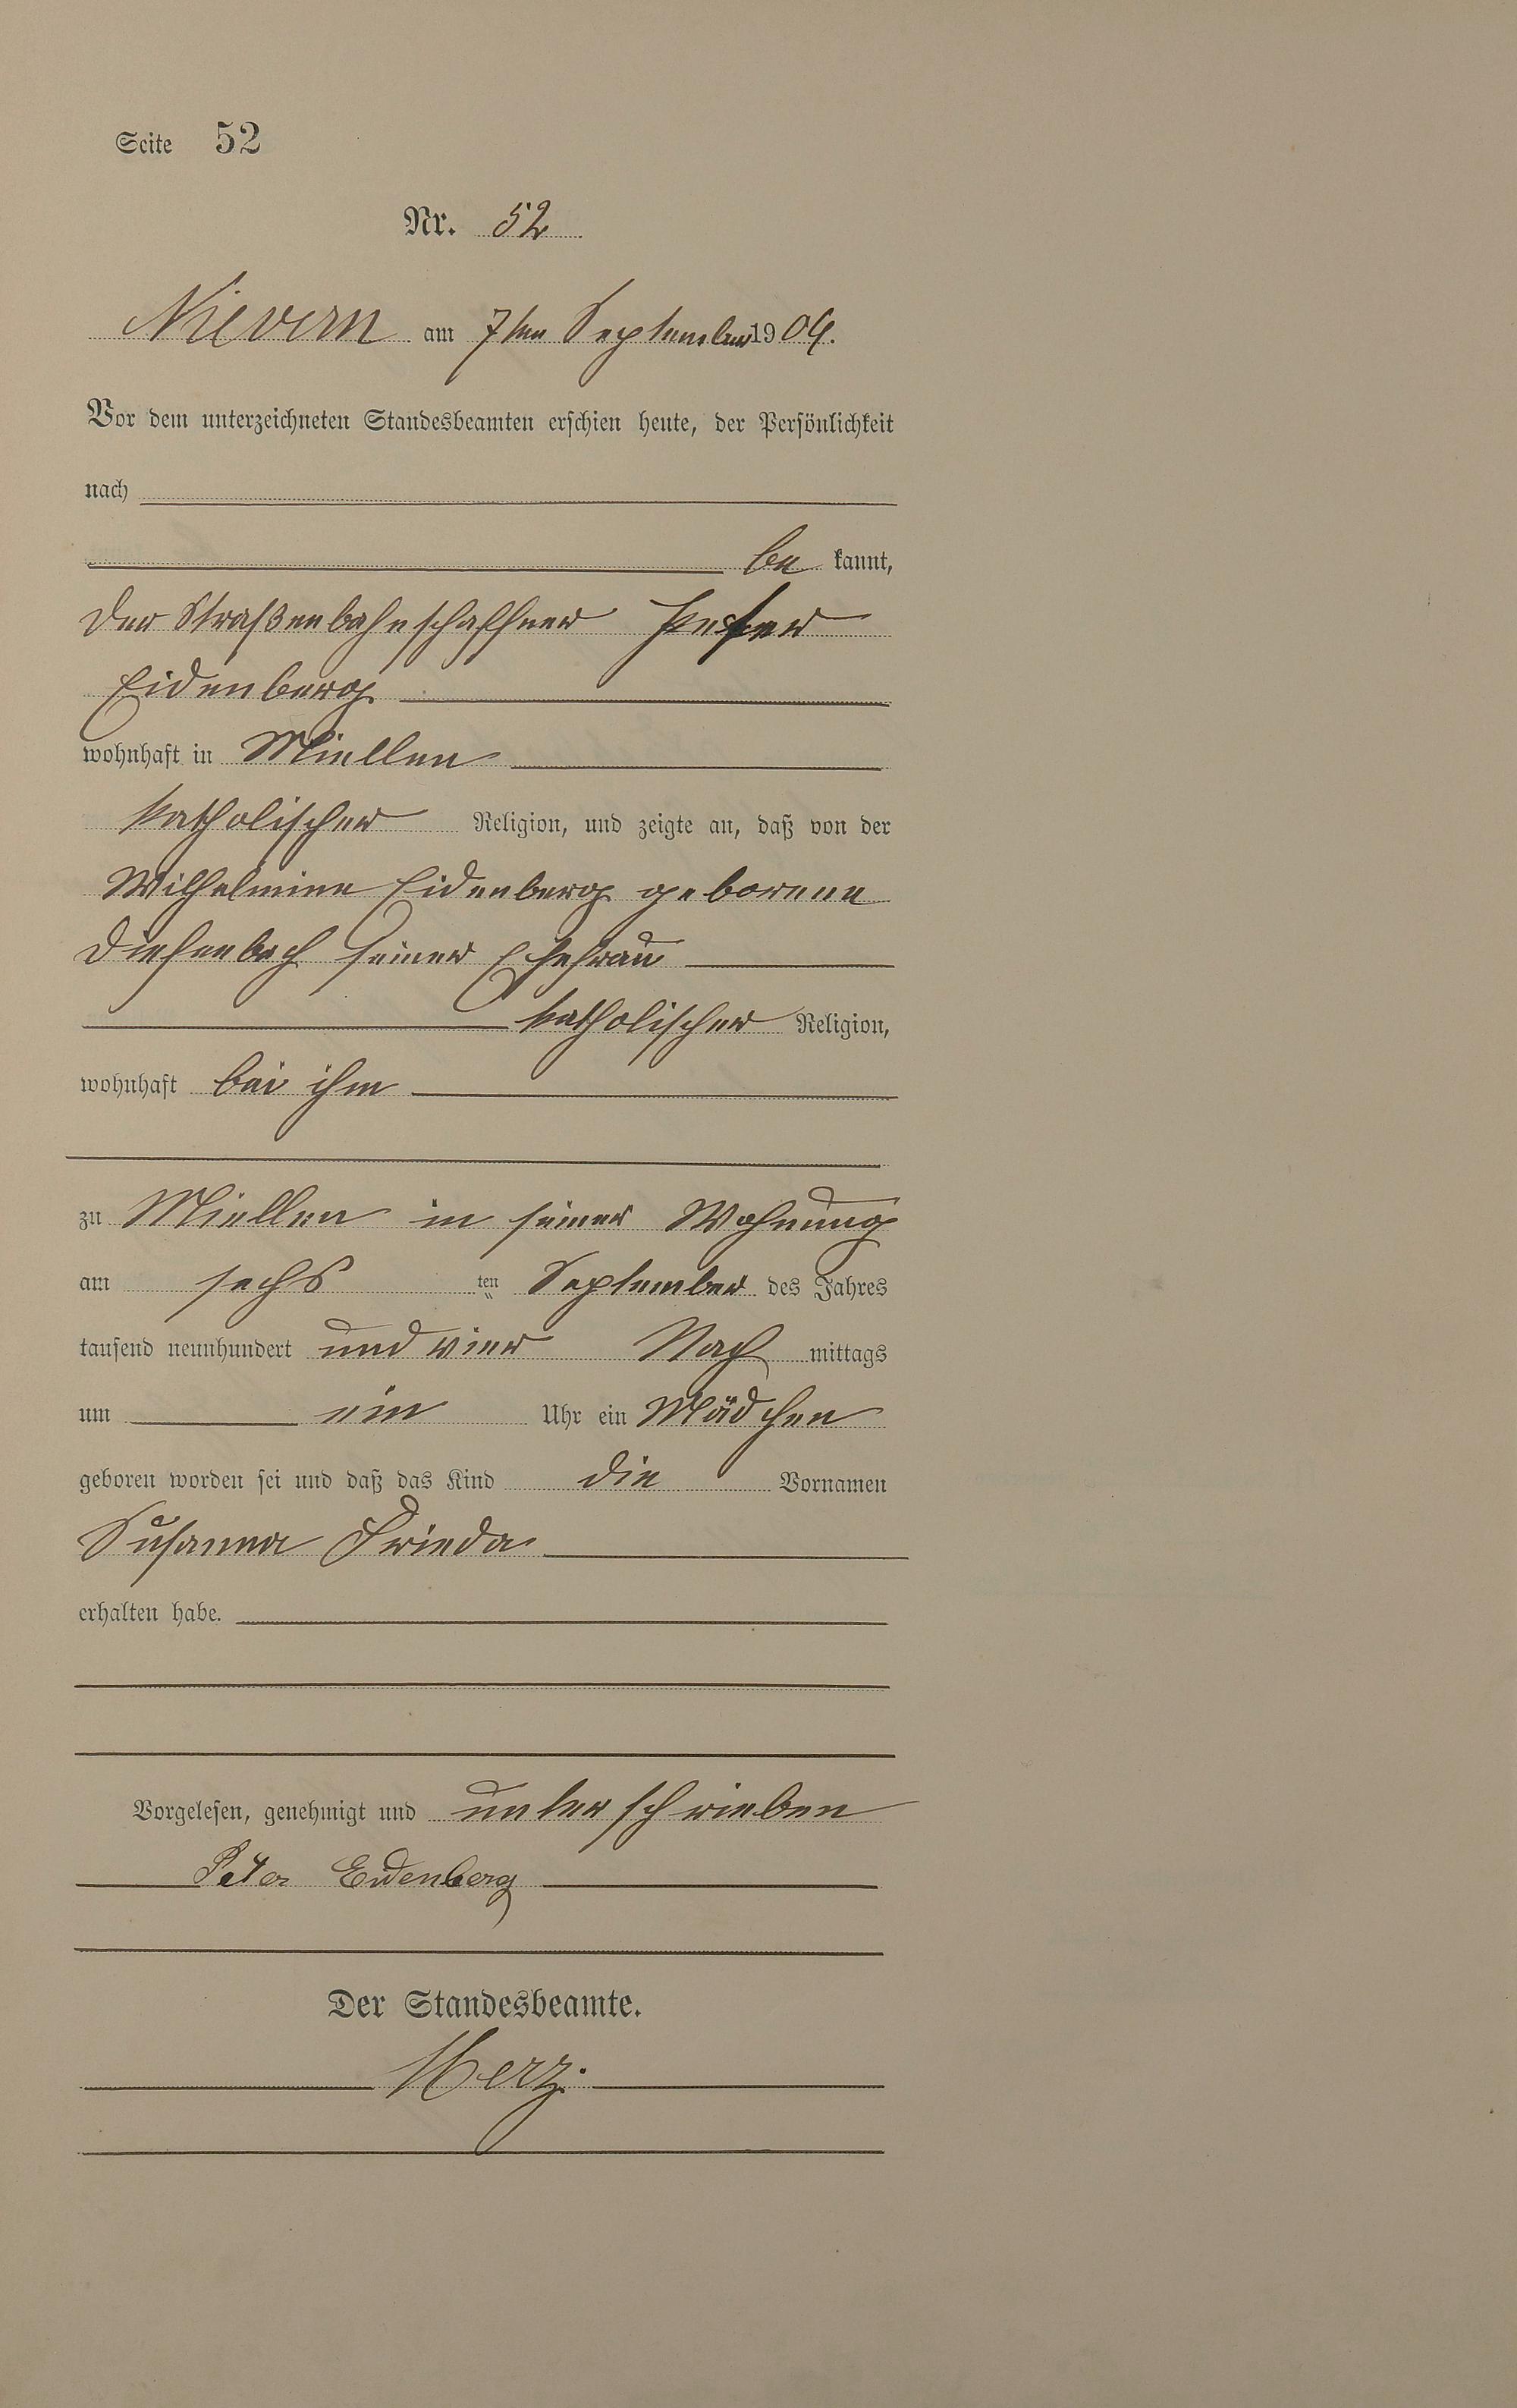 Seite 52
Nr. 52
Nievern am 7ten September 1904.
Vor dem unterzeichneten Standesbeamten erschien heute, der Persönlichkeit
nach
be kannt,
der Straßenbahnschaffner Peter
Eidenberg
wohnhaft in Miellen
katholischer Religion, und zeigte an, daß von der
Wilhelmine Eidenberg geborene
Diefenbach seiner Ehefrau
katholischer Religion,
wohnhaft bei ihm
zu Miellen in seiner Wohnung
am sechs ten September des Jahres
tausend neunhundert und vier Nach mittags
um ein Uhr ein Mädchen
geboren worden sei und daß das Kind die Vornamen
Susanna Frieda
erhalten habe.
Vorgelesen, genehmigt und unterschrieben
Peter Eidenberg
Der Standesbeamte.
Herz.